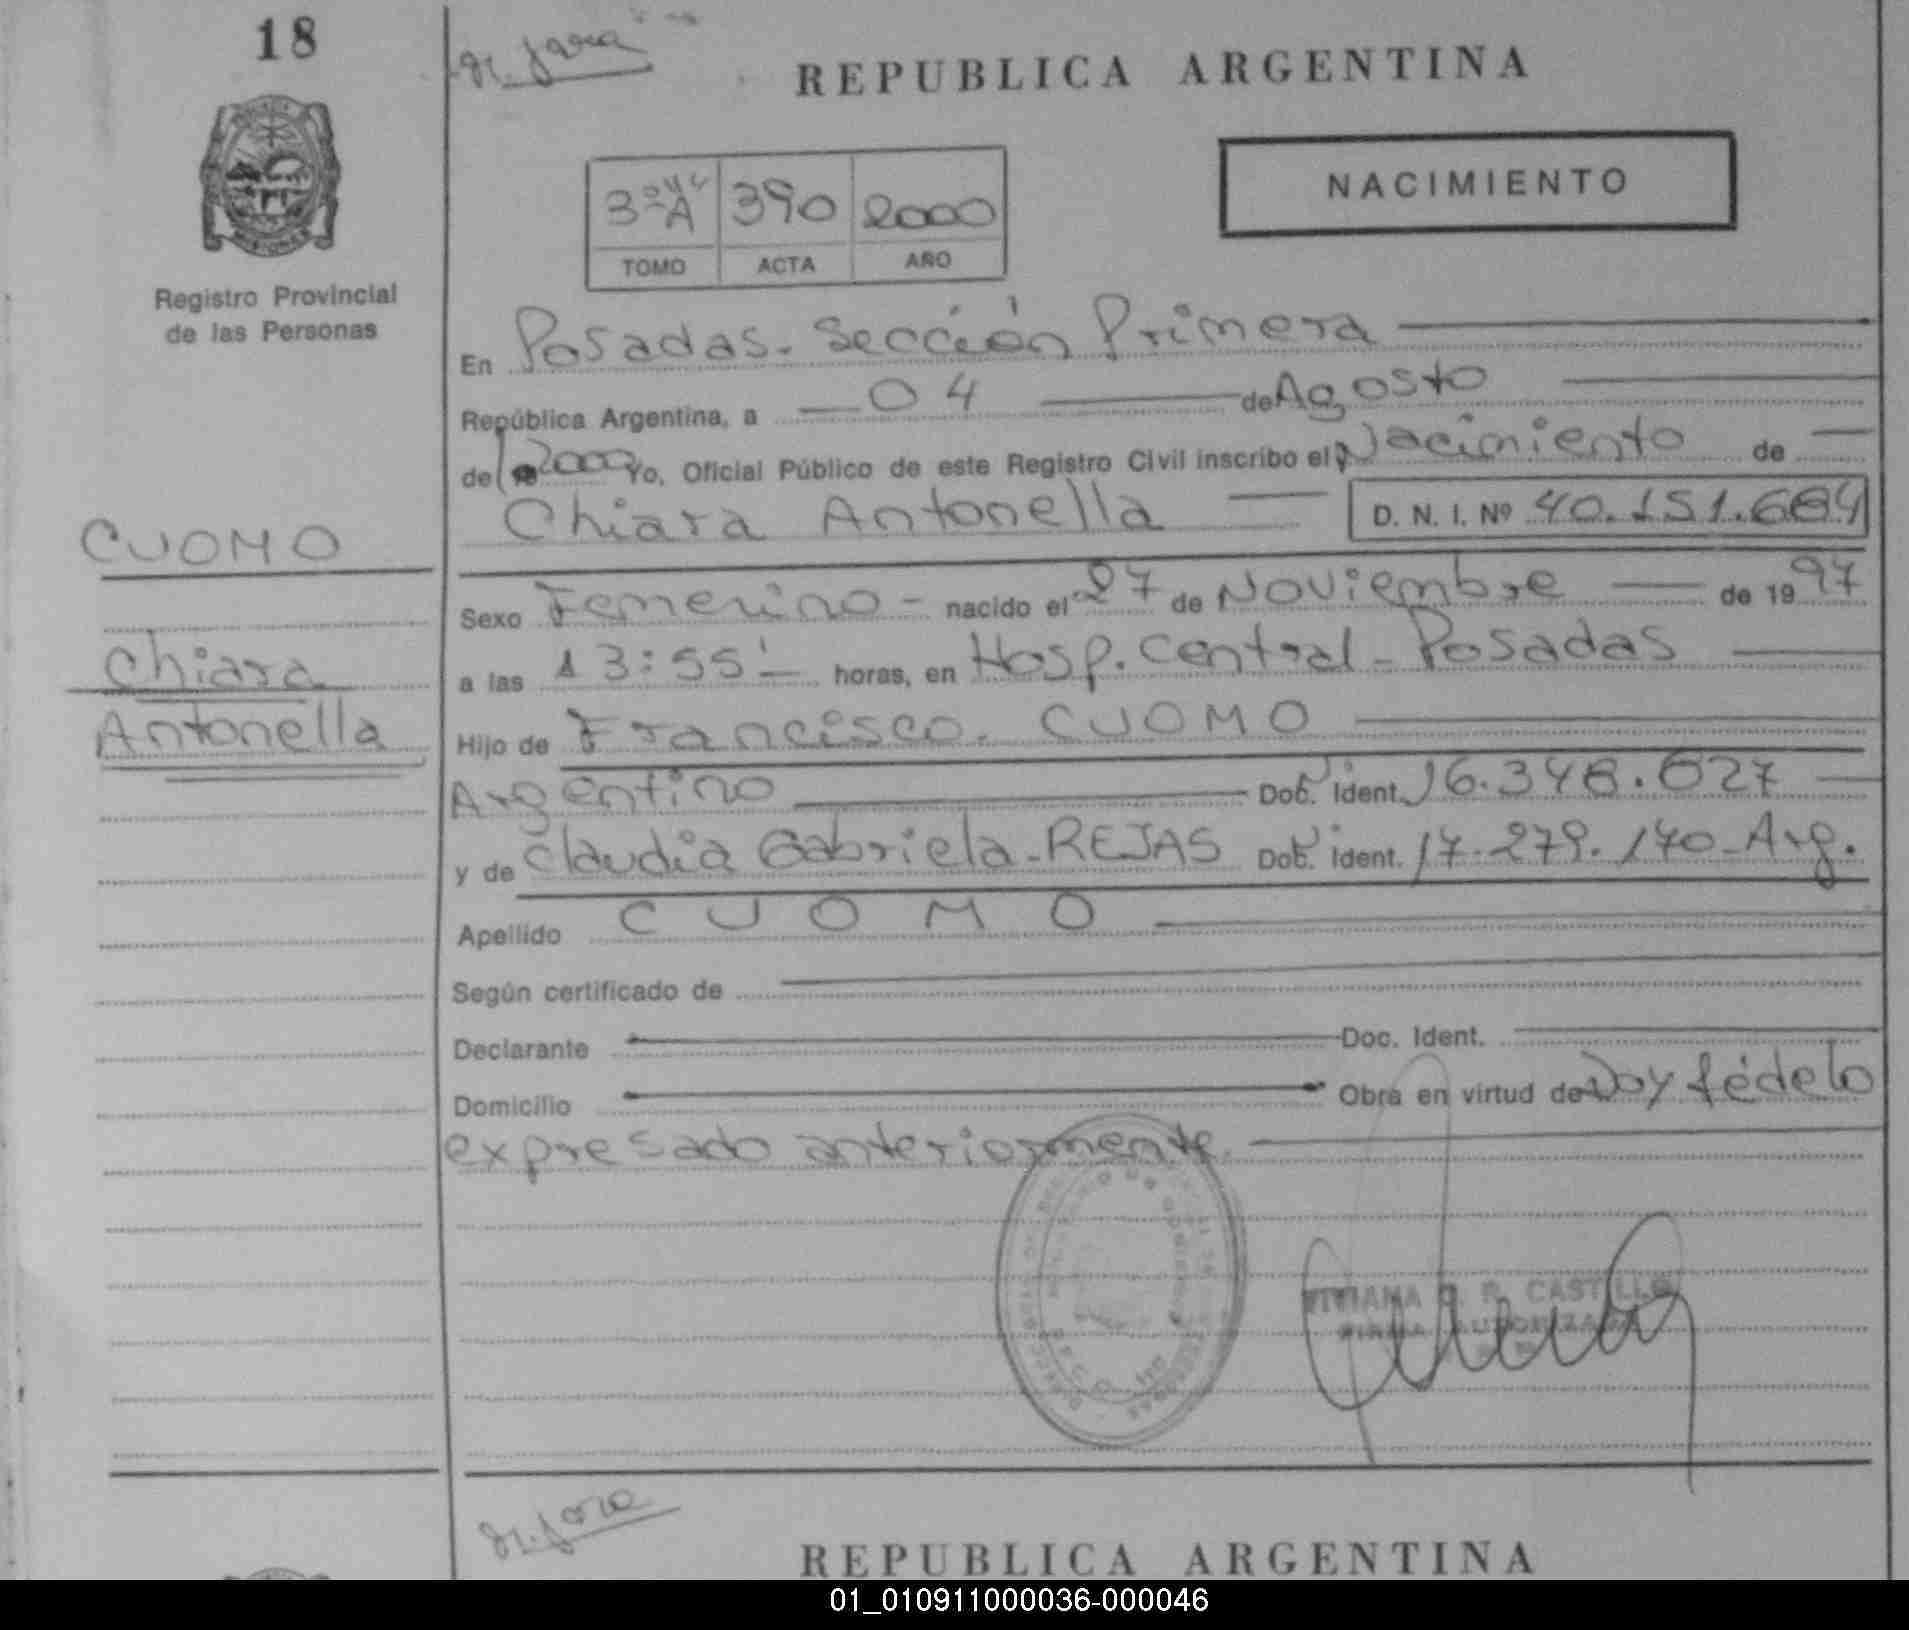 18
REPUBLICA ARGENTINA
NACIMIENTO
3º A 390 2000
TOMO ACTA AÑO
Registro Provincial
de las Personas
En Posadas. Sección Primera
República Argentina, a 04 de Agosto
de 2000 Yo, Oficial Público de este Registro Civil inscribo el Nacimiento de
Chiara Antonella D. N. I. Nº 40.151.684
CUOMO
Chiara
Antonella
Sexo Femenino - nacido el 27 de Noviembre de 1997
a las 13:55' horas, en Hosp. Central - Posadas
Hijo de Francisco. CUOMO
Argentino Doc. Ident. 16.348.627
y de Claudia Gabriela - REJAS Doc. Ident. 17.279.170 - Arg.
Apellido CUOMO
Según certificado de
Declarante Doc. Ident.
Domicilio Obra en virtud de Doy fé de lo
expresado anteriormente.
CASTILLO
FIRMA AUTORIZADA
REPUBLICA ARGENTINA
01_010911000036-000046